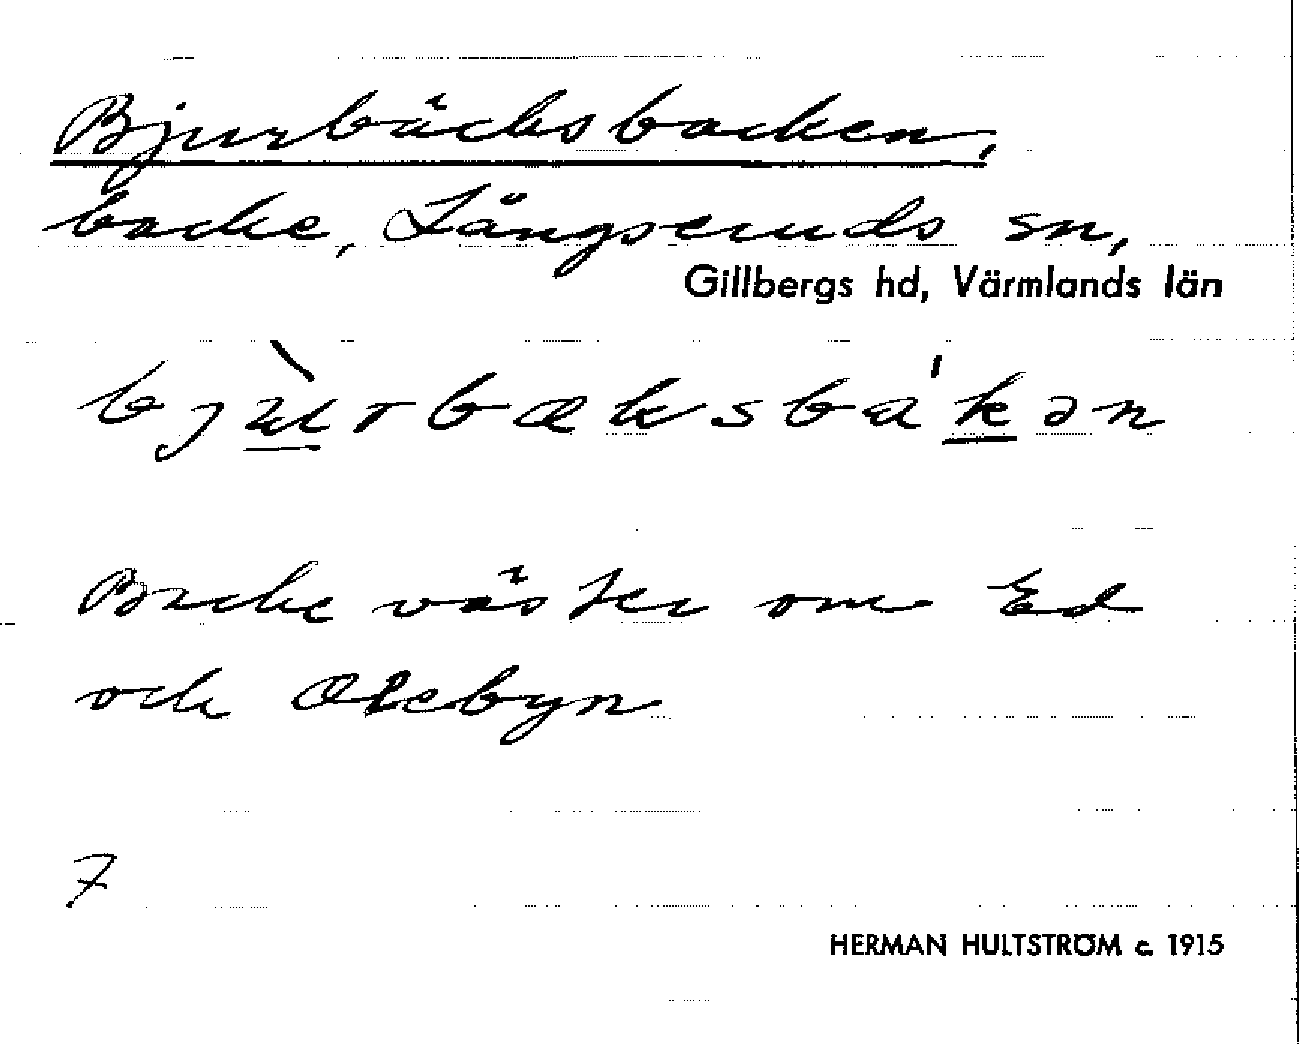 Bjurbäcksbacken,
backe, Långseruds sn,
Gillbergs hd, Värmlands län
bjùrbæksbá̍kən
Backe väster om Ed
och Olebyn
7
HERMAN HULTSTRÖM c. 1915